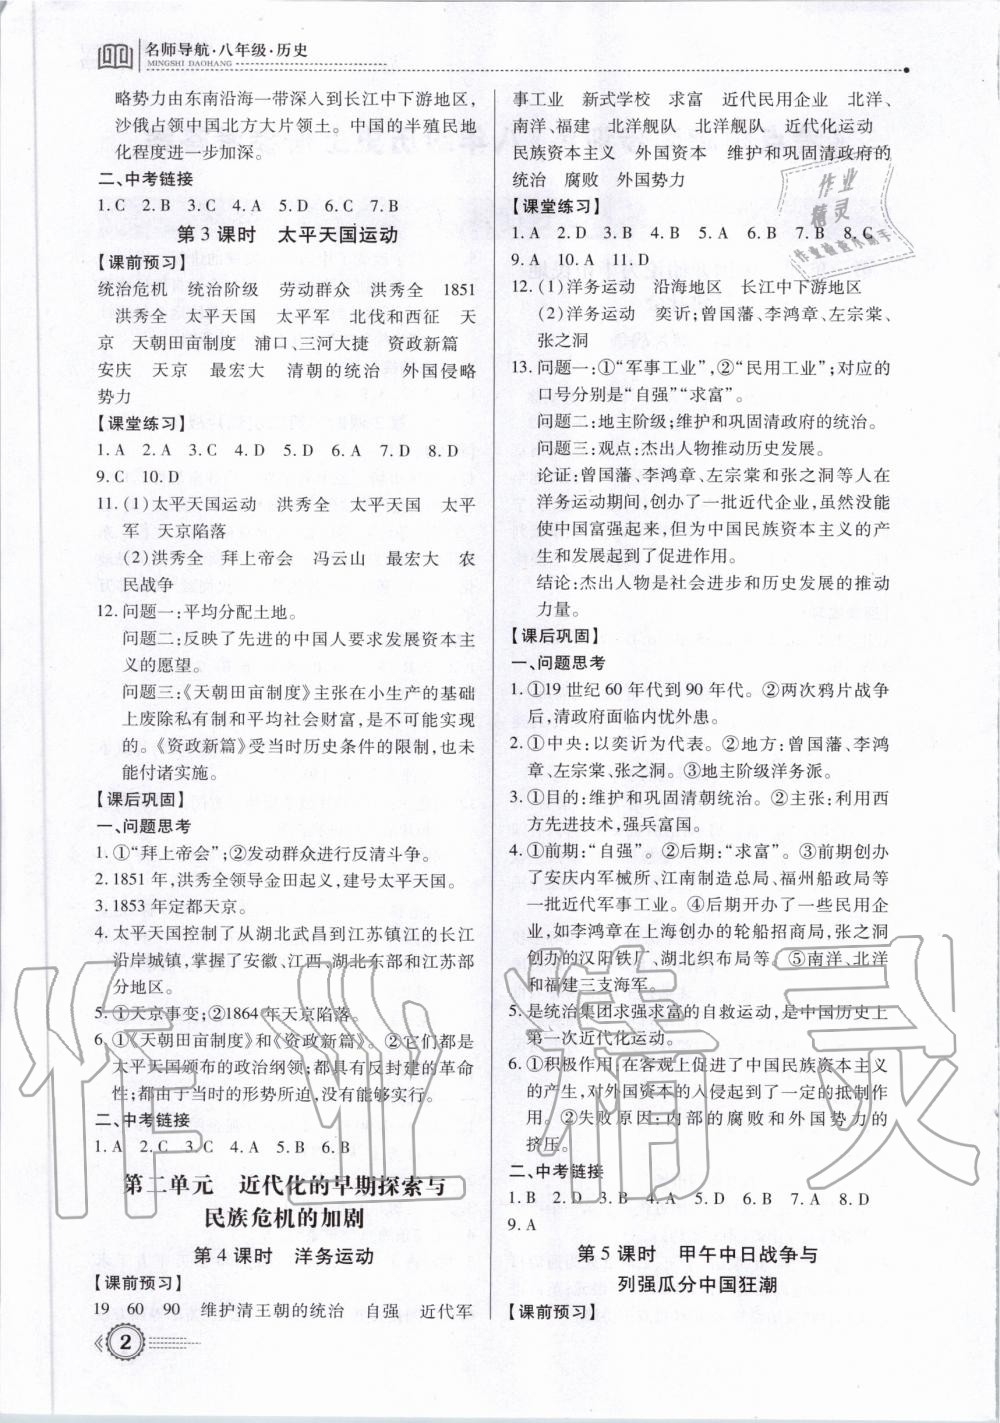 名师导航·八年级·历史
MINGSHI DAOHANG
略势力由东南沿海一带深入到长江中下游地区,
沙俄占领中国北方大片领土。中国的半殖民地
化程度进一步加深。
二、中考链接
1. C 2. B 3. C 4. A 5. D 6. C 7. B
第 3 课时 太平天国运动
【课前预习】
统治危机 统治阶级 劳动群众 洪秀全 1851
洪秀全 太平天国 太平军 北伐和西征 天
京 天朝田亩制度 浦口、三河大捷 资政新篇
安庆 天京 最宏大 清朝的统治 外国侵略
势力
【课堂练习】
1. A 2. A 3. C 4. D 5. D 6. A 7. D 8. D
9. C 10. D
11. (1)太平天国运动 洪秀全 太平天国 太平
军 天京陷落
(2)洪秀全 拜上帝会 冯云山 最宏大 农
民战争
12. 问题一:平均分配土地。
问题二:反映了先进的中国人要求发展资本主
义的愿望。
问题三:《天朝田亩制度》主张在小生产的基础
上废除私有制和平均社会财富,是不可能实现
的。《资政新篇》受当时历史条件的限制,也未
能付诸实施。
【课后巩固】
一、问题思考
1. ①“拜上帝会”;②发动群众进行反清斗争。
2. 1851 年,洪秀全领导金田起义,建号太平天国。
3. 1853 年定都天京。
4. 太平天国控制了从湖北武昌到江苏镇江的长江
沿岸城镇,掌握了安徽、江西、湖北东部和江苏部
分地区。
5. ①天京事变;②1864 年天京陷落。
6. ①《天朝田亩制度》和《资政新篇》。②它们都是
太平天国颁布的政治纲领;都具有反封建的革命
性;都由于当时的形势所迫,没有能够实行。
二、中考链接
1. A 2. C 3. C 4. A 5. B 6. B
第二单元 近代化的早期探索与
民族危机的加剧
第 4 课时 洋务运动
【课前预习】
19 60 90 维护清王朝的统治 自强 近代军
2
事工业 新式学校 求富 近代民用企业 北洋、
南洋、福建 北洋舰队 北洋舰队 近代化运动
民族资本主义 外国资本 维护和巩固清政府的
统治 腐败 外国势力
【课堂练习】
1. A 2. D 3. B 4. A 5. A 6. B 7. B 8. C
9. A 10. A 11. D
12. (1)洋务运动 沿海地区 长江中下游地区
(2)洋务运动 奕䜣;曾国藩、李鸿章、左宗棠、
张之洞
13. 问题一:①“军事工业”,②“民用工业”;对应的
口号分别是“自强”“求富”。
问题二:地主阶级;维护和巩固清政府的统治。
问题三:观点:杰出人物推动历史发展。
论证:曾国藩、李鸿章、左宗棠和张之洞等人在
洋务运动期间,创办了一批近代企业,虽然没能
使中国富强起来,但为中国民族资本主义的产
生和发展起到了促进作用。
结论:杰出人物是社会进步和历史发展的推动
力量。
【课后巩固】
一、问题思考
1. ①19 世纪 60 年代到 90 年代。②两次鸦片战争
后,清政府面临内忧外患。
2. ①中央:以奕䜣为代表。②地方:曾国藩、李鸿
章、左宗棠、张之洞。③地主阶级洋务派。
3. ①目的:维护和巩固清朝统治。②主张:利用西
方先进技术,强兵富国。
4. ①前期:“自强”。②后期:“求富”。③前期创办
了安庆内军械所、江南制造总局、福州船政局等
一批近代军事工业。④后期开办了一些民用企
业,如李鸿章在上海创办的轮船招商局,张之洞
创办的汉阳铁厂、湖北织布局等。⑤南洋、北洋
和福建三支海军。
5. 是统治集团求强求富的自救运动,是中国历史上
第一次近代化运动。
6. ①积极作用:在客观上促进了中国民族资本主义
的产生,对外国资本的入侵起到了一定的抵制作
用。②失败原因:内部的腐败和外国势力的
挤压。
二、中考链接
1. B 2. B 3. D 4. B 5. A 6. D 7. A 8. D
9. A
第 5 课时 甲午中日战争与
列强瓜分中国狂潮
【课前预习】
作业
精灵
作业检查小助手
作业精灵